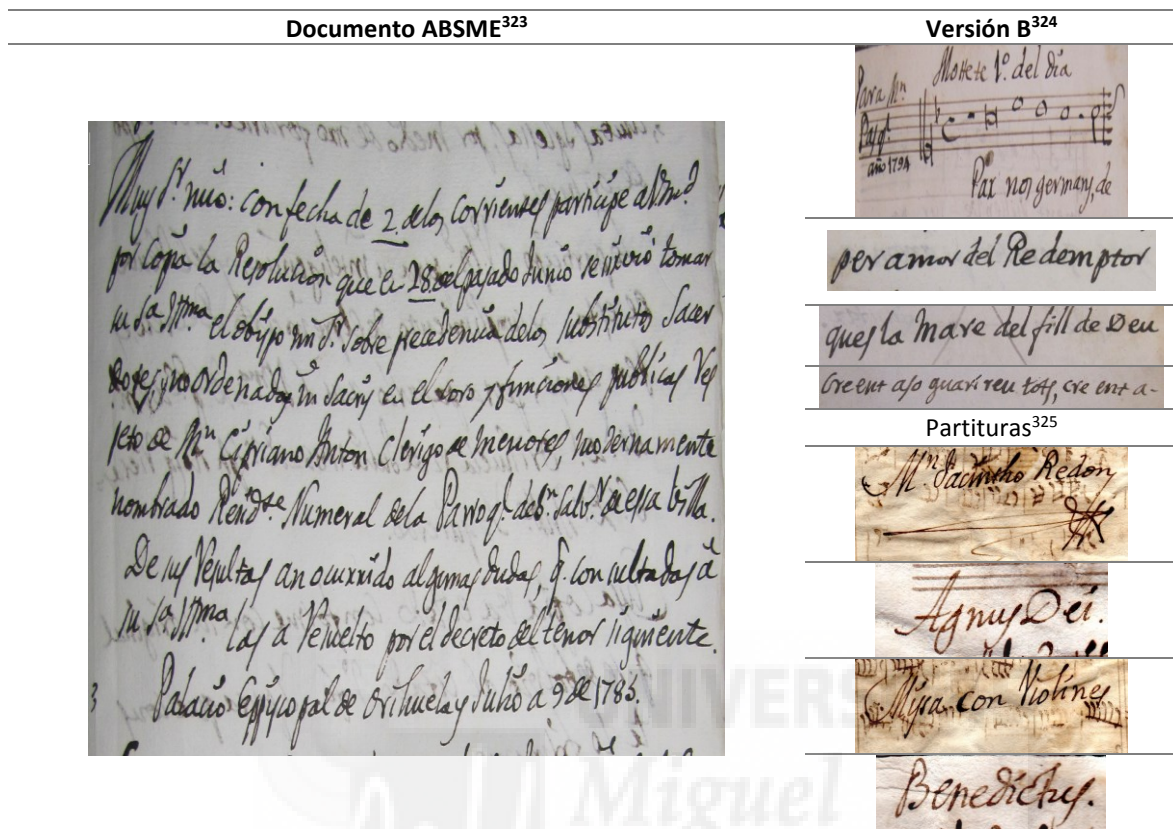 Documento ABSME323
Muy Sr. mio: con fecha de 2 delos Corrientes participe a Vmd.
por Copia la Resolucion que en 28 del pasado Junio se sirvio tomar
su Sa. Illma. el obispo mi Sr. sobre precedencia delos substitutos Sacer
dotes, y no ordenados in Sacris en el coro y funciones publicas Res
peto de Mn. Cipriano Anton Clerigo de menores, modernamente
nombrado Residte. Numeral dela Parroql. de Sn. Salvr. de essa Villa.
De sus Resultas an ocurrido algunas dudas, q. consultadas à
su Sa. Illma. las a Resuelto por el decreto del tenor siguiente.
3 Palacio Episcopal de Orihuela y Julio a 9 de 1785.
Versión B324
Mottete 1º. del dia
Para Mn.
Pasql.
año 1794
Pax nos germans, de
per amor del Redemptor
ques la Mare del fill de Deu
Creent aso guarireu tots, cre ent a-
Partituras325
Mn. Jacintho Redon
Agnus Dei.
Missa con Violines
Benedictus.
UNIVERS
Miguel